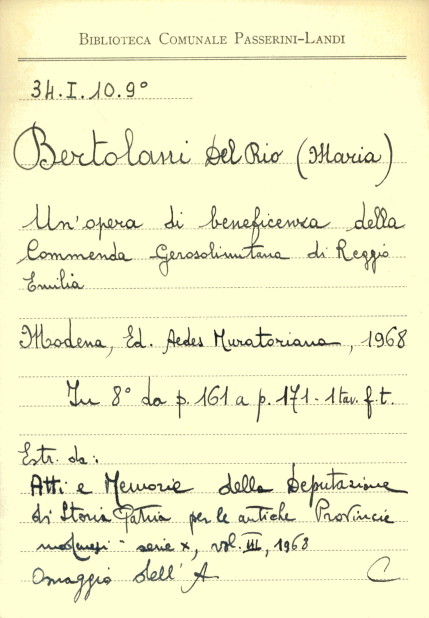 BIBLIOTECA COMUNALE PASSERINI-LANDI
34.I.10.9°
Bertolani Del Rio (Maria)
Un'opera di beneficenza della
Commenda Gerosolimitana di Reggio
Emilia
Modena, Ed. Aedes Muratoriana, 1968
In 8° da p. 161 a p. 171 - 1 tav. f.t.
Estr. da:
Atti e Memorie della Deputazione
di Storia Patria per le antiche Provincie
modenesi - serie X, vol. III, 1968
Omaggio dell'A C